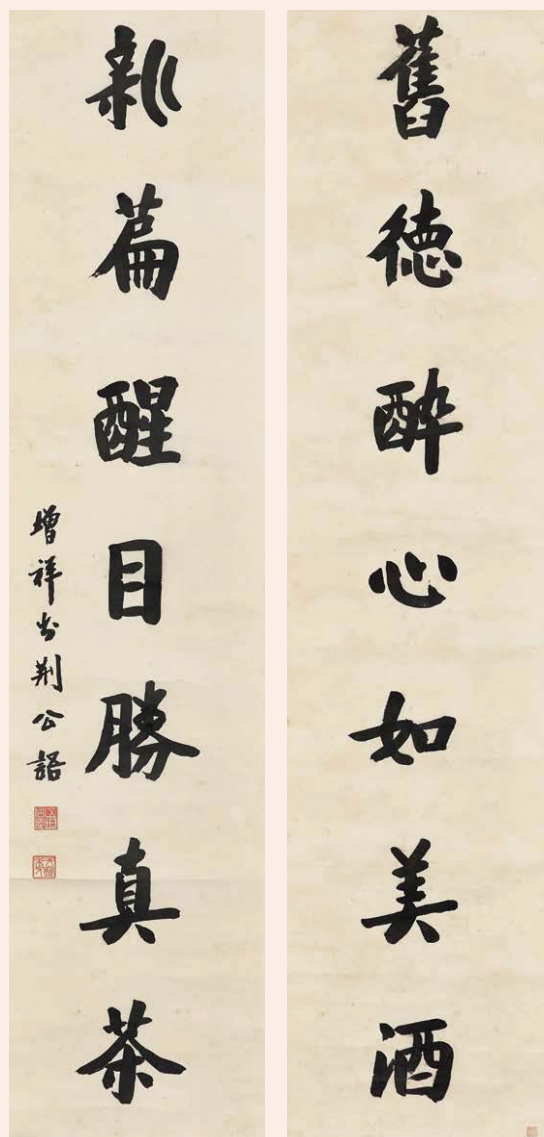 舊德醉心如美酒
新篇醒目勝真茶
增祥书荆公語